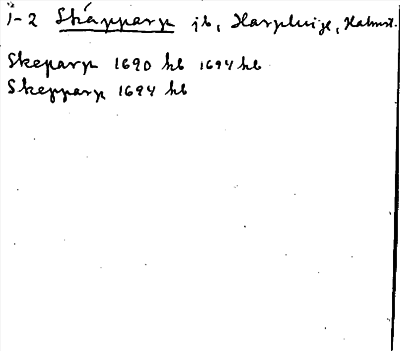 1-2 Skäpparp jb, Harplinge, Halmst.
Skeparp 1690 hb 1694 hb
Skepparp 1694 hb